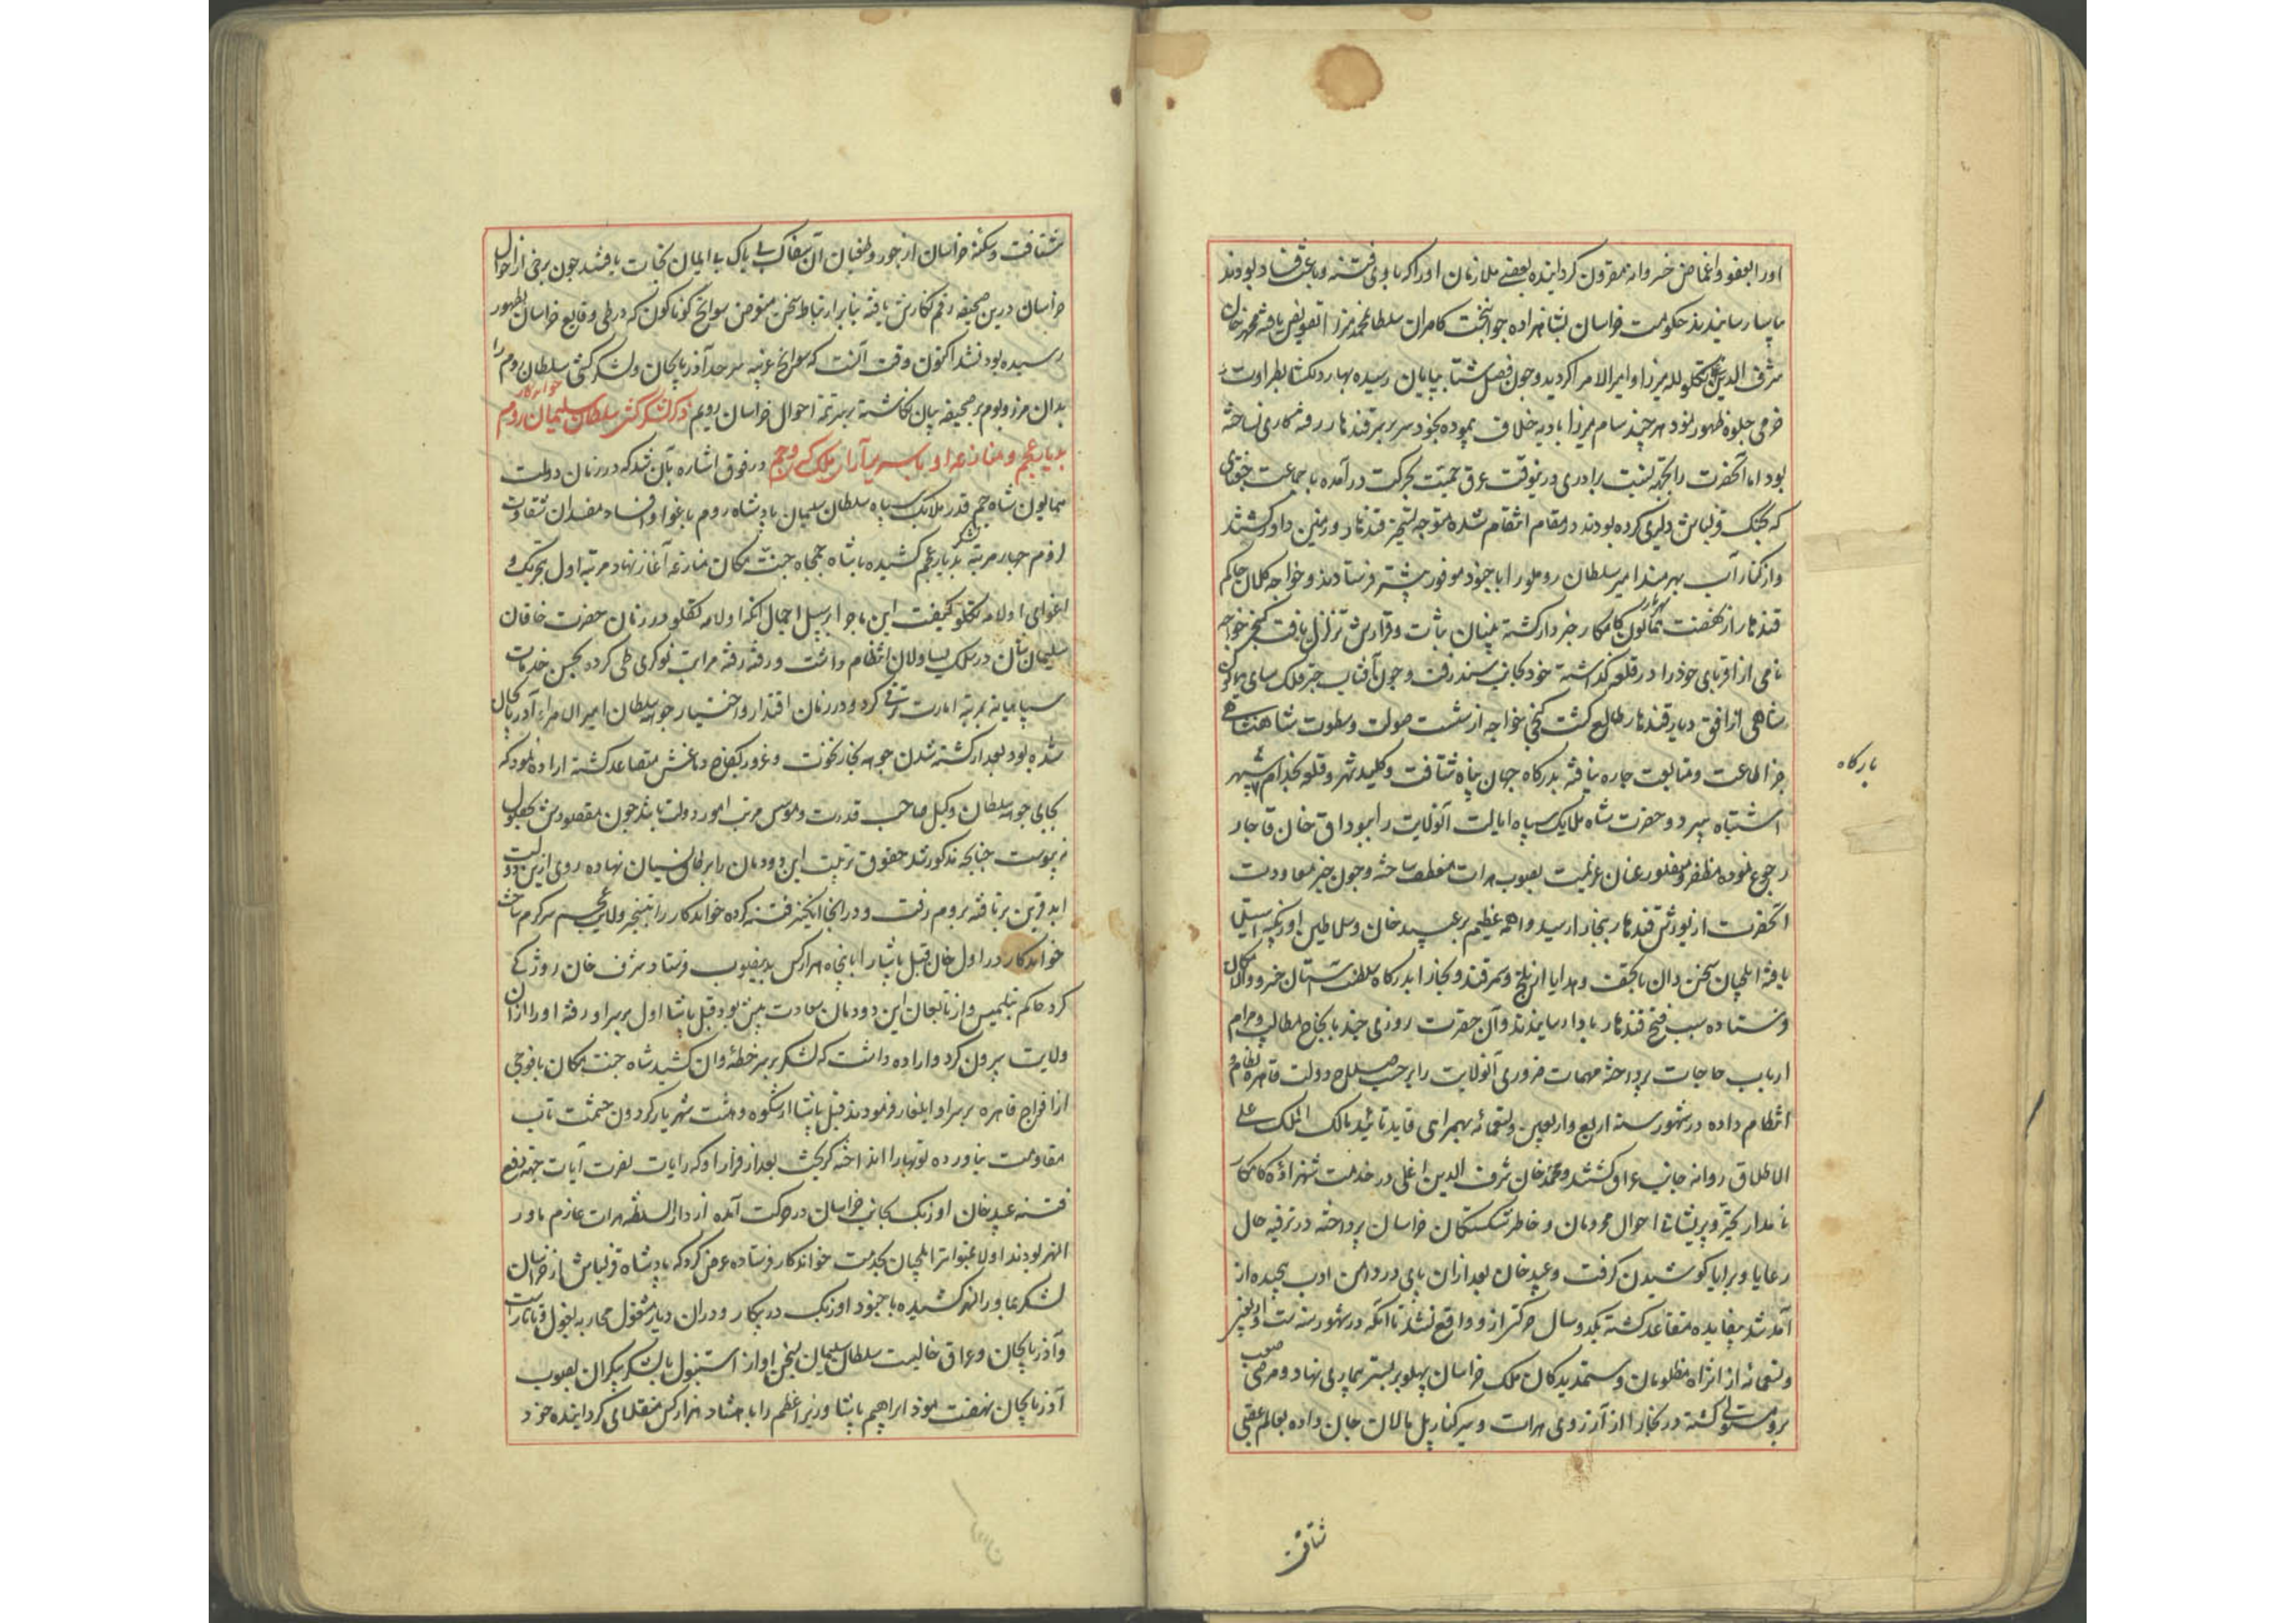 اورا بعفو و اغماض خسروانه مقرون گردانیده بعضی ملازمان اورا که باوی فتنه و باعث فساد بودند
بیاسا رسانیدند حکومت خراسان بشاهزاده جوانبخت کامران سلطان محمد میرزا تفویض یافته محمد خان
شرف الدین اغلی تکلو لله میرزا و امیر الامرا گردید و چون فصل شتا بپایان رسیده بهار دلگشا بطراوت و
خرمی جلوه ظهور نمود هر چند سام میرزا بادیه خلاف پیموده بخود سر بر سر قندهار رفته کاری نساخته
بود اما آنحضرت را بجهة نسبت برادری درینوقت عرق حمیت بحرکت درآمده با جماعت جغتای
که بجنک قزلباش دلیری کرده بودند در مقام انتقام شده متوجه تسخیر قندهار و زمین داور گشتند
و از کنار آب هیرمند امیر سلطان روملو را با جنود موفور پیشتر فرستادند و خواجه کلان حاکم
قندهار از نهضت همایون کامکار خبردار گشته بنیان ثبات و قرارش تزلزل یافت گنجی خواجه
نامی از اقربای خود را در قلعه گذاشته خود بجانب سند رفت و چون آفتاب چتر فلک سای همایون
شاهی از افق دیار قندهار طالع گشت گنجی خواجه از سطوت صولت و سطوت شاهنشاهی
جز اطاعت و متابعت چاره نیافته بدرگاه جهان پناه شتافت و کلید شهر و قلعه بخدام سپهر
اشتباه سپرد و حضرت شاه ملایک سپاه ایالت آنولایت را ببوداق خان قاجار
رجوع نموده مظفر و منصور عنان عزیمت بصوب هرات منعطف ساخته و چون خبر معاودت
آنحضرت از یورش قندهار ببخارا رسید واهمه عظیم بر عبید خان و سلاطین اوزبکیه استیلا
یافته ایلچیان سخن دان با تحف و هدایا از بلخ و سمرقند و بخارا بدرگاه سلطنت آشیان خسرو والامکان
فرستاده سبب فتح قندهار بادا رسانیدند و آن حضرت روزی چند بانجاح مطالب و مرام
ارباب حاجات پرداخته مهمات ضروری آنولایت را بر حسب صلاح دولت قاهره نظام و
انتظام داده در شهور سنه اربع و اربعین و تسعمائه بهمراهی قاید تائید مالک الملک علی
الاطلاق روانه جانب عراق گشتند و محمد خان شرف الدین اغلی در خدمت شهزاده کامکار
نامدار بخیر و پریشانی احوال محرومان و خاطر شکستگان خراسان پرداخته در ترفیه حال
رعایا و برایا کوشیدن گرفت و عبید خان بعد از آن پای در دامن ادب پیچیده از
آمد شد بیفایده متقاعد گشته یکدو سال حرکتی از و واقع نشد تا آنکه در شهور سنه ست و اربعین
و تسعمائه از اثر آه مظلومان و ستمدیدگان ملک خراسان پهلو بر بستر بیماری نهاد و مرضی صعب
برو مستولی گشته در بخارا از آرزوی هرات و سیر کنار پل مالان جان داده بعالم عقبی
بارگاه
شتافت
شتافت و سکنه خراسان از جور و طغیان آن سفاک بی باک بی ایمان نجات یافتند چون برخی از احوال
خراسان درین صحیفه رقم نگارش یافته بنا بر ارتباط سخن متعرض سوانح گوناگون که در طی وقایع خراسان بظهور
رسیده بود نشد اکنون وقت آنست که سوانح غریبه سرحد آذربایجان و لشکر کشی سلطان روم را
بدان مرز و بوم بر صحیفه بیان نگاشته بر سر تتمه احوال خراسان رویم ذکر لشکر کشی سلطان سلیمان خواندکار روم
بدیار عجم و منازعه او با سریر آرای ملک کی و جم در فوق اشاره بآن شد که در زمان دولت
همایون شاه جم قدر ملایک سپاه سلطان سلیمان پادشاه روم باغوا و افساد مفسدان شقاوت
لزوم چهار مرتبه لشکر بدیار عجم کشیده با شاه جمجاه جنت مکان منازعه آغاز نهاد مرتبه اول بتحریک و
اغوای اولامه تکلو کیفیت این ماجرا بر سبیل اجمال آنکه اولامه تکلو در زمان حضرت خاقان
سلیمان شان در سلک یساولان انتظام داشت و رفته رفته مراتب نوکری طی کرده بحسن خدمات
سپاهیانه بمرتبه امارت ترقی کرد و در زمان اقتدار و اختیار جوهه سلطان امیر الامراء آذربایجان
شده بود بعد از کشته شدن جوهه بخار نخوت و غرور بکاخ دماغش متصاعد گشته اراده نمود که
بجای جوهه سلطان وکیل صاحب قدرت و موسس مرتب امور دولت باشد چون مقصودش بحصول
نپیوست چنانچه مذکور شد حقوق تربیت این دودمان را بر طاق نسیان نهاده روی ازین دولت
ابد قرین برتافته بروم رفت و در آنجا انگیز فتنه کرده خواندکار را بتسخیر ولایت عجم سرگرم ساخت
خواندکار در اول خان قبل پاشا را با پنجاه هزار کس بدینصوب فرستاد شرف خان روزکی
کرد حاکم بتلیس و از تابعان این دودمان سعادت مبین بود قبل پاشا اول بر سر او رفته اورا از آن
ولایت بیرون کرد و اراده داشت که لشکر بر سر خطه وان کشید شاه جنت مکان با فوجی
از افواج قاهره بر سر او ایلغار فرمودند قبل پاشا از شکوه و هشت شهریار گردون حشمت تاب
مقاومت نیاورده توپها را انداخته گریخت بعد از فرار او که رایات نصرت آیات جهة دفع
فتنه عبید خان اوزبک بجانب خراسان در حرکت آمده از دار السلطنه هرات عازم ماورا
النهر بودند اولامه متواتر ایلچیان بخدمت خواندکار فرستاده عرض کرد که پادشاه قزلباش از خراسان
لشکر بماورا النهر کشیده با جنود اوزبک در پیکار و در آن دیار مشغول محاربه مغول و تاتار است
و آذربایجان و عراق خالیست سلطان سلیمان بسخن او از استنبول با لشکر بیکران بصوب
آذربایجان نهضت نمود ابراهیم پاشا وزیر اعظم را با هشتاد هزار کس منقلای گردانیده خود